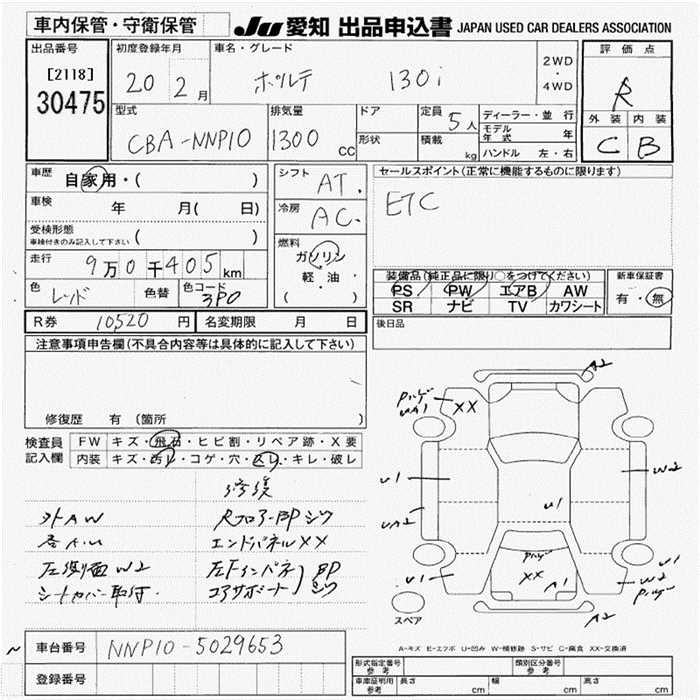 車内保管・守衛保管
JU 愛知 出品申込書 JAPAN USED CAR DEALERS ASSOCIATION
出品番号
[2118]
30475
初度登録年月
20 2月
車名・グレード
ポルテ 130i
2WD
・
4WD
評価点
R
外装 内装
C B
型式
CBA-NNP10
排気量
1300 cc
ドア
形状
定員 5人
積載 kg
ディーラー・並行
モデル年式 年
ハンドル 左・右
車歴 自家用・( )
車検 年 月( 日)
受検形態
車検付きのみ記入して下さい ( )
走行 9万0千405km
色 レッド 色替
色コード 3P0
シフト AT.
冷房 AC.
燃料
ガソリン
軽・油
( )
セールスポイント(正常に機能するものに限ります)
ETC
装備品(純正品に限り○をつけてください)
PS PW エアB AW
SR ナビ TV カワシート
新車保証書
有・無
後日品
R券 10520円 名変期限 月 日
注意事項申告欄(不具合内容等は具体的に記入して下さい)
修復歴 有 (箇所 )
検査員
記入欄
FW キズ・飛石・ヒビ割・リペア跡・X要
内装 キズ・汚レ・コゲ・穴・スレ・キレ・破レ
修復
外AW RフロアーBPシワ
各A.U エンドパネルXX
左側面W2 左Fインパネ BP
シートカバー取付. コアサポート シワ
A2
XX
UA1
U1
UA2
U1
U1
W2
XX
A1
W2
A2
スペア
A-キズ E-エクボ U-凹み W-補修跡 S-サビ C-腐食 XX-交換済
車台番号 NNP10-5029653
登録番号
形式指定番号 参考
類別区分番号 参考
車庫証明用 参考 長さ cm 幅 cm 高さ cm